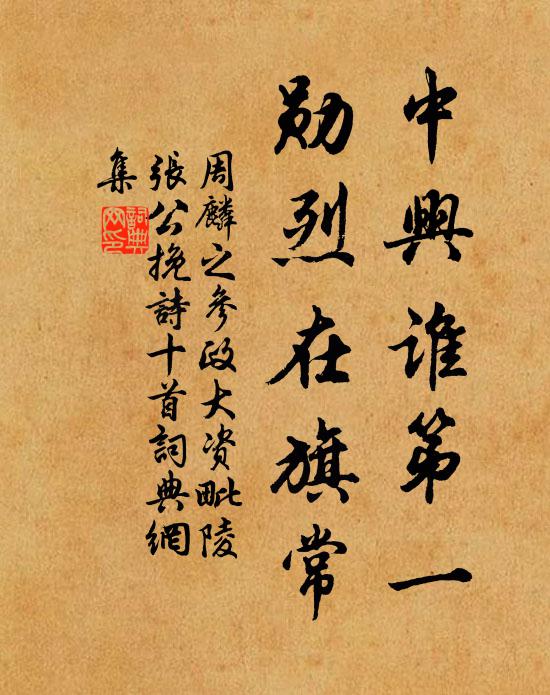 中興谁第一
勋烈在旗常
周麟之参政大资毗陵
張公挽詩十首詞典網
集
詞典
网印